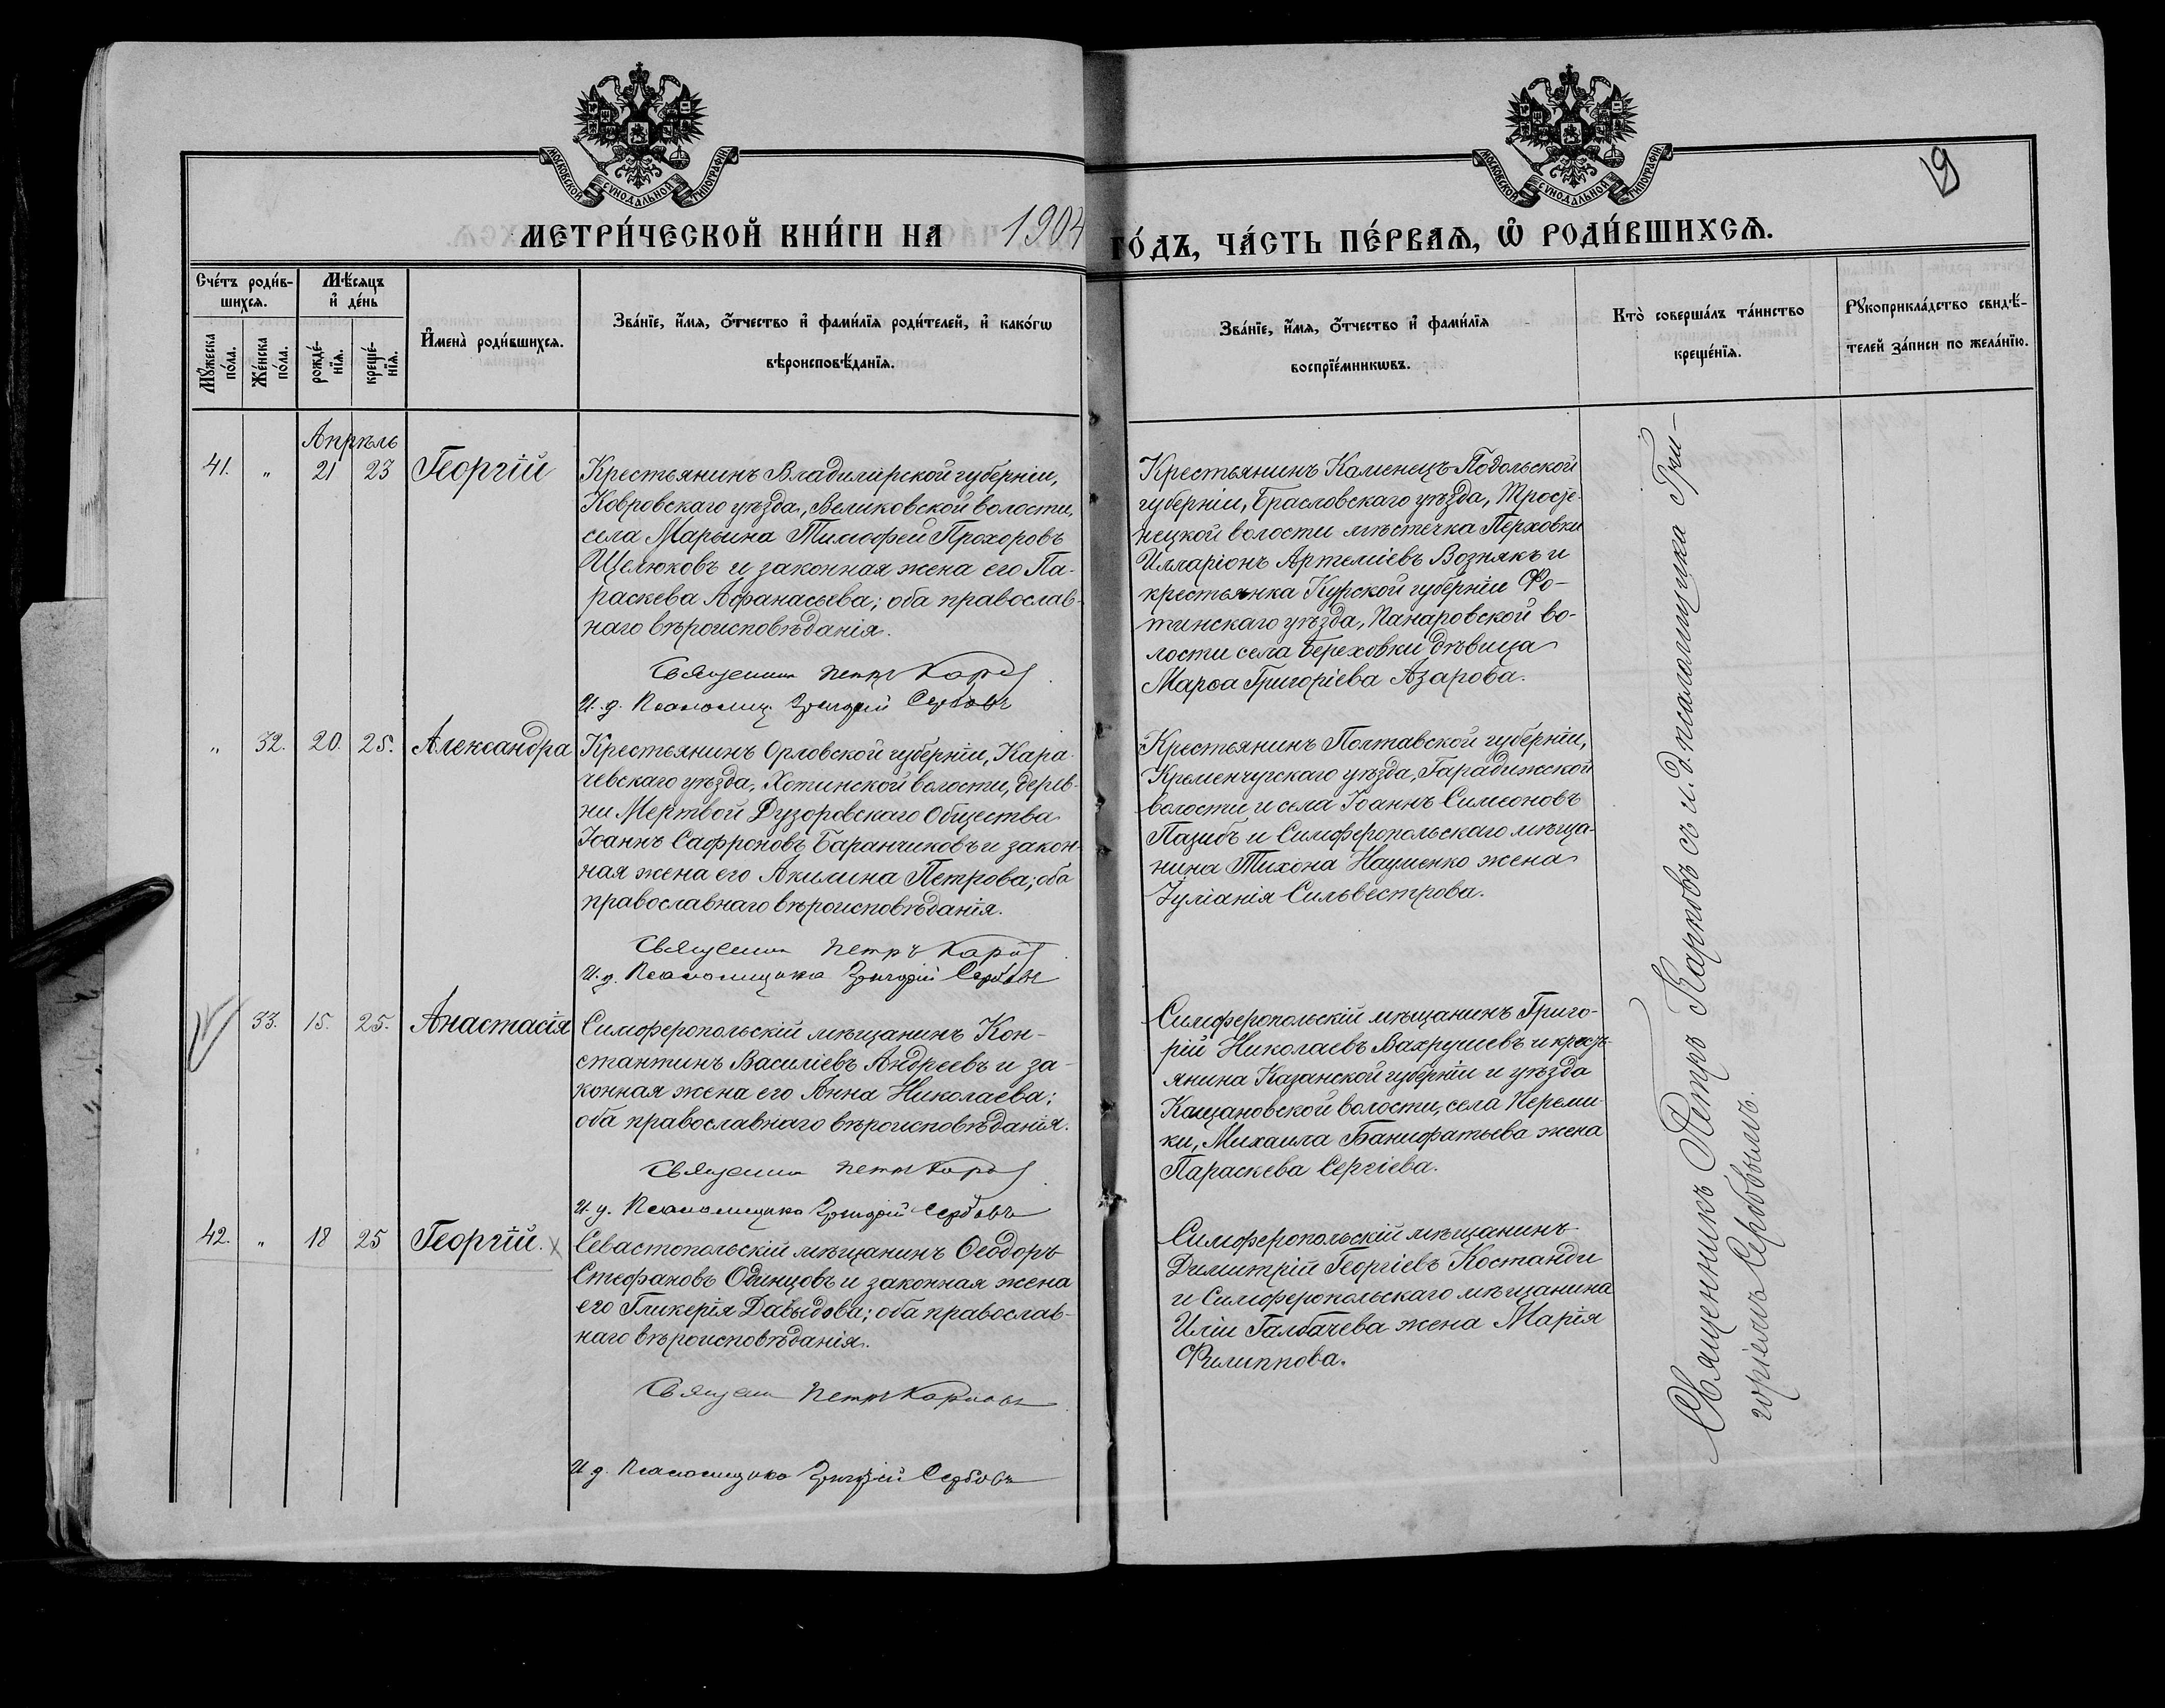 МОСКОВСКОЙ СѴНОДАЛЬНОЙ ТИПОГРАФІИ
МОСКОВСКОЙ СѴНОДАЛЬНОЙ ТИПОГРАФІИ
19
МЕТРИ́ЧЕСКОЙ КНИ́ГИ НА 1904 ГО́ДЪ, ЧА́СТЬ ПЕ́РВАѦ, Ѡ҆ РОДИ́ВШИХСѦ.
Сче́тъ роди́в-
шихсѧ.
Мѣ́сѧцъ
и҆ де́нь
Мꙋ́жеска
по́ла.
Же́нска
по́ла.
рожде́-
нїѧ.
креще́-
нїѧ.
И҆мена̀ роди́вшихсѧ.
Зва́нїе, и҆́мѧ, ѻ҆́тчество и҆ фами́лїѧ роди́телей, и҆ како́гѡ
вѣроисповѣ́данїѧ.
Зва́нїе, и҆́мѧ, ѻ҆́тчество и҆ фами́лїѧ
воспрїе́мникѡвъ.
Кто̀ соверша́лъ та́инство
креще́нїѧ.
Рꙋкоприкла́дство свидѣ́-
телей за́писи по жела́нїю.
Апрѣль
41. " 21 23 Георгій
Крестьянинъ Владимірской губерніи,
Ковровскаго уѣзда, Великовской волости,
села Марьина Тимофей Прохоровъ
Щелоковъ и законная жена его Па-
раскева Афанасьева; оба православ-
наго вѣроисповѣданія.
Священник Петръ Карповъ
И. д. Псаломщ. Григорій Сербовъ
Крестьянинъ Каменецъ-Подольской
губерніи, Брасловскаго уѣзда, Тростя-
нецкой волости мѣстечка Перховки
Илларіонъ Артеміевъ Вознякъ и
крестьянка Курской губерніи Фо-
тинскаго уѣзда, Панаровской во-
лости села Береховки дѣвица
Марѳа Григоріева Азарова.
" 32. 20. 25. Александра
Крестьянинъ Орловской губерніи, Кара-
чевскаго уѣзда, Хотинской волости, дерев-
ни Мертвой Дузоровскаго Общества
Іоаннъ Сафроновъ Баранчиковъ и закон-
ная жена его Акилина Петрова; оба
православнаго вѣроисповѣданія.
Священник Петръ Карповъ
И. д. Псаломщика Григорій Сербовъ
Крестьянинъ Полтавской губерніи,
Кременчугскаго уѣзда, Гарадижской
волости и села Іоаннъ Симеоновъ
Пазибъ и Симферопольскаго мѣща-
нина Тихона Науменко жена
Іуліанія Сильвестрова.
33. 15. 25. Анастасія
Симферопольскій мѣщанинъ Кон-
стантинъ Василіевъ Андреевъ и за-
конная жена его Анна Николаева;
оба православнаго вѣроисповѣданія.
Священник Петръ Карповъ
И. д. Псаломщика Григорій Сербовъ
Симферопольскій мѣщанинъ Григо-
рій Николаевъ Вахрушевъ и кресть-
янина Казанской губерніи и уѣзда
Кощановской волости, села Переми-
ки, Михаила Банифатьева жена
Параскева Сергіева.
42. " 18 25 Георгій.
Севастопольскій мѣщанинъ Ѳеодоръ
Стефановъ Одинцовъ и законная жена
его Гликерія Давыдова; оба православ-
наго вѣроисповѣданія.
Священ Петръ Карповъ
И. д. Псаломщика Григорій Сербовъ
Симферопольскій мѣщанинъ
Димитрій Георгіевъ Костанди
и Симферопольскаго мѣщанина
Иліи Галбачева жена Марія
Филиппова.
Священникъ Петръ Карповъ съ и. д. псаломщика Гри-
горіемъ Сербовымъ.